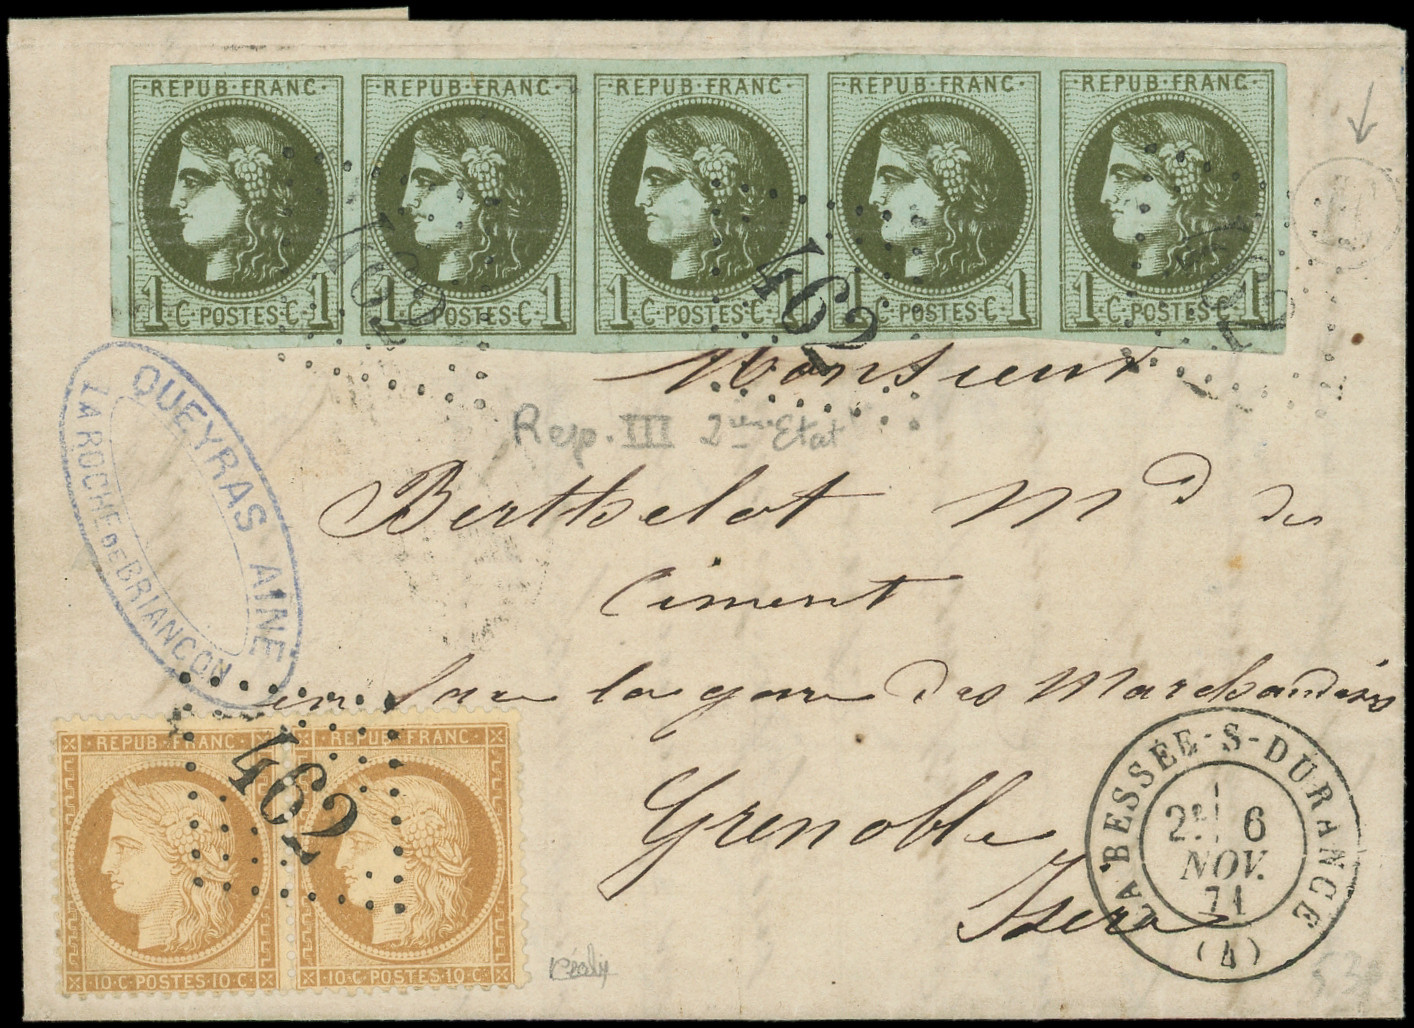 ·REPUB·FRANC· ·REPUB·FRANC· ·REPUB·FRANC· ·REPUB·FRANC· ·REPUB·FRANC·
1 C·POSTES·C· 1 1 C·POSTES·C· 1 1 C·POSTES·C· 1 1 C·POSTES·C· 1 1 C·POSTES·C· 1
462 462
Monsieur
Resp. III 2ème Etat
QUEYRAS AINE
LA ROCHE DE BRIANCON
Berthelot Md de
Ciment
en face la gare des Marchandises
Grenoble
Isère
·REPUB·FRANC· ·REPUB·FRANC·
462
10·C·POSTES·10·C· 10·C·POSTES·10·C·
LA BESSÉE-S-DURANCE
2E 6
NOV.
71
(4)